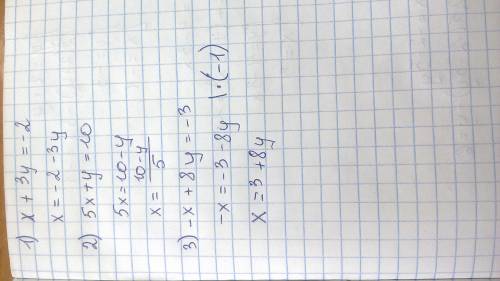 1) x + 3y = -2
x = -2 - 3y
2) 5x + y = 10
5x = 10 - y
x = \frac{10 - y}{5}
3) -x + 8y = -3
-x = -3 - 8y | · (-1)
x = 3 + 8y